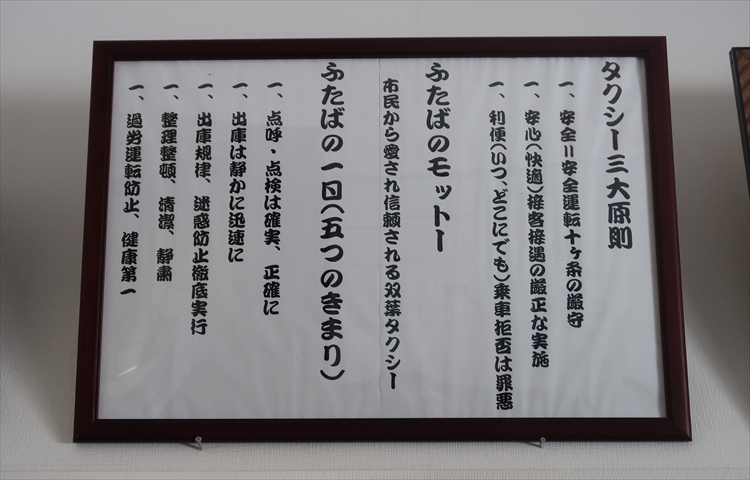 タクシー三大原則
一、安全＝安全運転十ヶ条の厳守
一、安心(快適)接客接遇の厳正な実施
一、利便(いつ、どこにでも)乗車拒否は罪悪
ふたばのモットー
市民から愛され信頼される双葉タクシー
ふたばの一日(五つのきまり)
一、点呼・点検は確実、正確に
一、出庫は静かに迅速に
一、出庫規律、迷惑防止徹底実行
一、整理整頓、清潔、静粛
一、過労運転防止、健康第一